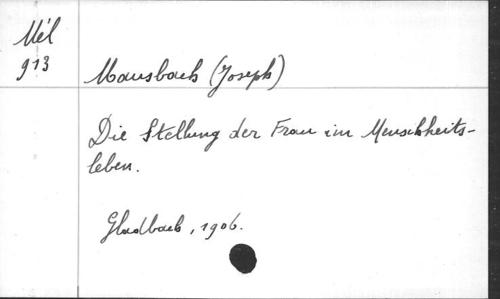 Mél
913
Mausbach (Joseph)
Die Stellung der Frau im Menschheits-
leben.
Gladbach, 1906.